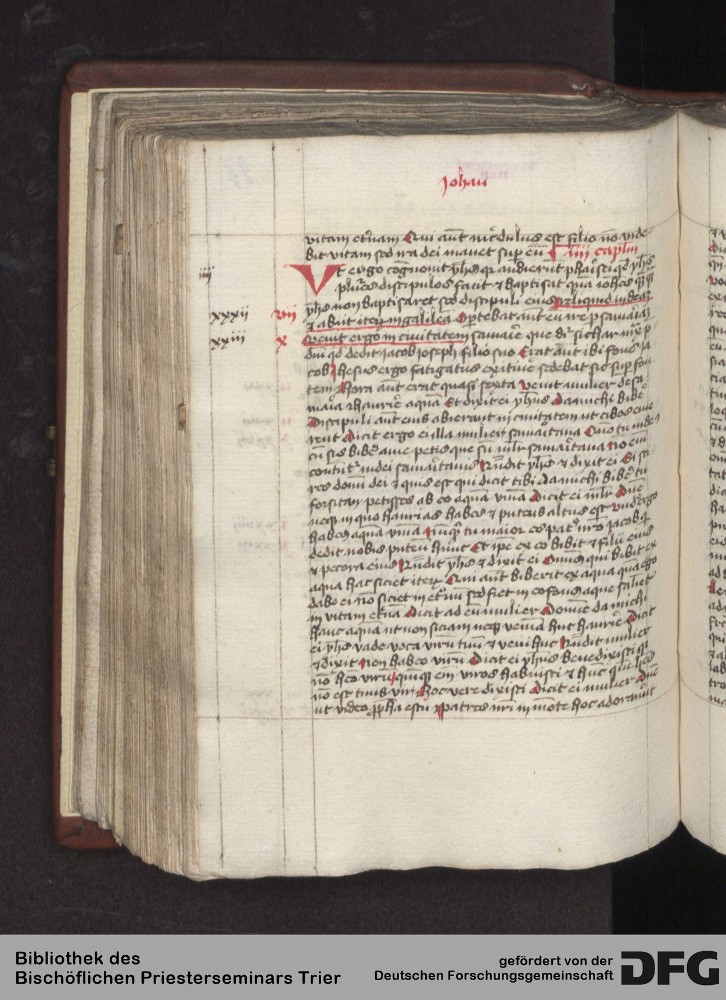 Johan
vitam et'nam Qui aut incredulus est filio no vide
bit vitam sed ira dei manet sup eu iiii caplm
iiii Ut ergo cognouit yhs qz audierut pharisei qd yhs
plures discipulos facit et baptisat qua iohes
yhs non baptisaret sed discipuli eius reliquid iudeaz
xxxii vii et abiit iteru in galilea Oportebat aut eu
xxiii x Uenit ergo in ciuitatem samarie que dr sichar iuxta p
diu qd dedit iacob joseph filio suo Erat aut ibi fons ja
cob Jhesus ergo fatigatus ex itine sedebat sic sup fon
tem Hora aut erat quasi sexta Venit mulier de sa
maria haurire aqua Et dixit ei yhus Da michi bibe
Discipuli aut eius abierant in ciuitatem ut cibos eme
rent Dicit ergo ei illa mulier samaritana Quo tu iude
cu sis bibe a me petis que su mlr samaritana no eni
contut iudei samaritanis Rndit yhs et dixit ei Si sci
res donu dei et quis est qui dicit tibi da michi bibe tu
forsitan petisses ab eo aqua viua Dicit ei mlr Dne
neqz in quo haurias habes et puteus altus est vnde ergo
habes aqua viua Nuqd tu maior es patre nro jacob q
dedit nobis puteu hunc Et ipe ex eo bibit et filii eius
et pecora eius Rndit yhs et dixit ei Omnis qui bibit ex
aqua hac sitiet iteru Qui aut biberit ex aqua qua ego
dabo ei no sitiet in et'nu sed fiet in eo fons aque saliet
in vitam et'na Dicit ad eu mulier Domine da michi
hanc aqua ut non siciam neqz veniam huc haurire Dicit
ei yhs vade voca viru tuu et veni huc Rndit mulier
et dixit Non habeo viru Dicit ei yhus Bene dixisti qz
no heo viru quinqz em viros habuisti et huc que hes
no est tuus vir Hoc vere dixisti Dicit ei mulier Dne
ut video ppha es tu Patres nri in mote hoc adorauerut
Bibliothek des
Bischöflichen Priesterseminars Trier
gefördert von der
Deutschen Forschungsgemeinschaft
DFG